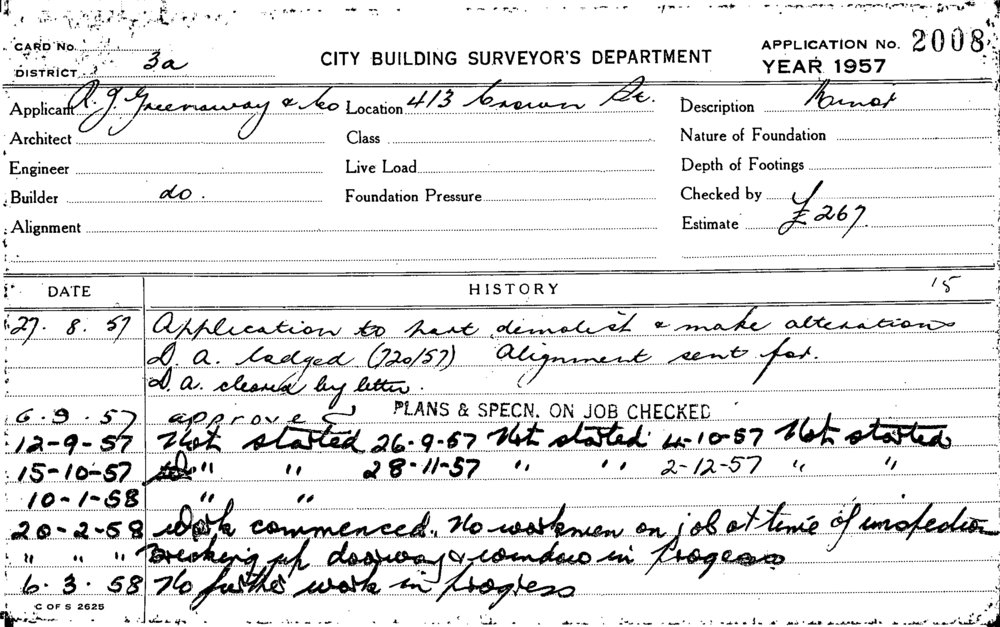 CARD No.
DISTRICT 3a
CITY BUILDING SURVEYOR'S DEPARTMENT
APPLICATION No. 2008
YEAR 1957
Applicant R. J. Greenaway & Co Location 413 Crown St. Description Minor
Architect Class Nature of Foundation
Engineer Live Load Depth of Footings
Builder do. Foundation Pressure Checked by
Alignment Estimate £267
DATE HISTORY 15
27. 8. 57 Application to part demolish & make alterations
D. A. lodged (720/57) Alignment sent for.
D. A. cleared by letter.
6. 9. 57 approved PLANS & SPECN. ON JOB CHECKED
12-9-57 Not started 26-9-57 Not started 4-10-57 Not started
15-10-57 " " 28-11-57 " " 2-12-57 " "
10-1-58 " "
20-2-58 Work commenced. No workmen on job at time of inspection
" " " Breaking up doorway & window in progess
6. 3. 58 No further work in progress
C OF S 2625